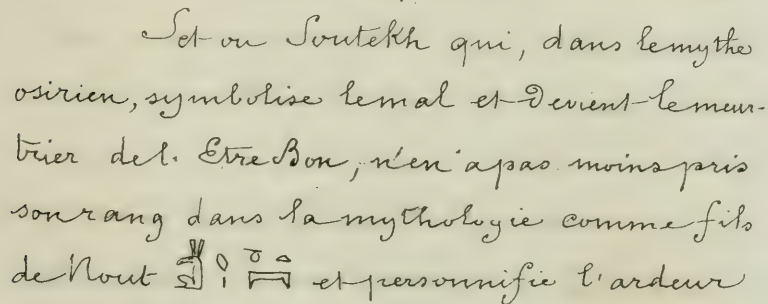 Set ou Soutekh qui, dans le mythe
osirien, symbolise le mal et devient le meur-
trier de l'Etre Bon, n'en a pas moins pris
son rang dans la mythologie comme fils
de Nout et personnifie l'ardeur